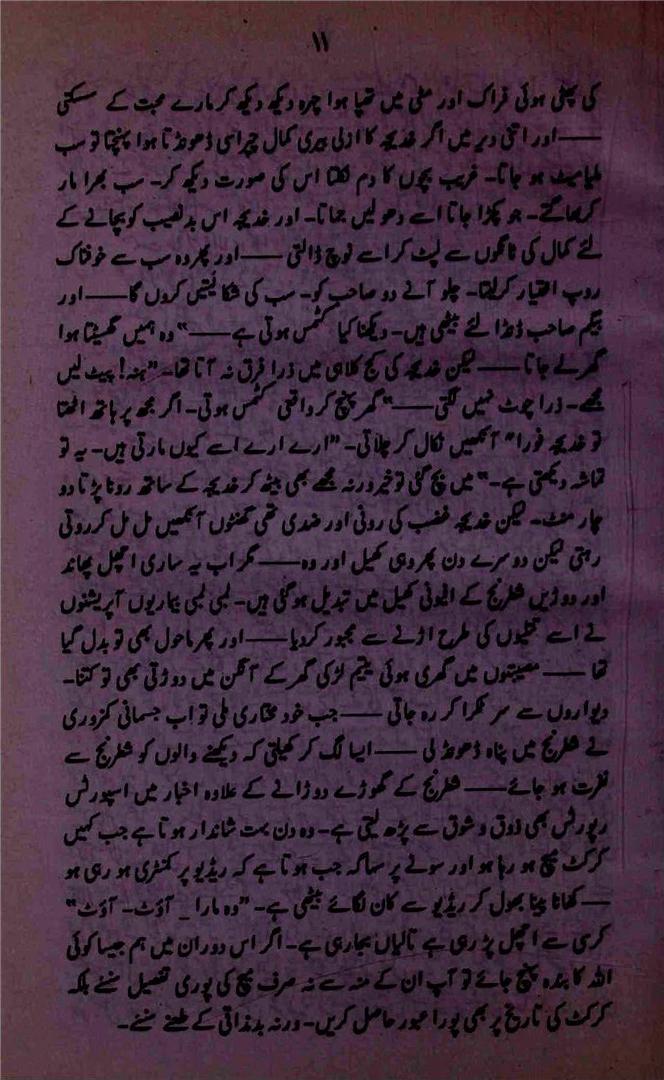 ۱۱
کی پھٹی ہوئی فراک اور مٹی میں تھپا ہوا چہرہ دیکھ دیکھ کر مارے محبت کے سسکتی
—— اور اتنی دیر میں اگر خدیجہ کا ازلی بیری کمال چپراسی ڈھونڈتا ہوا پہنچتا تو سب
ملیامیٹ ہو جاتا۔ غریب بچوں کا دم نکلتا اس کی صورت دیکھ کر۔ سب بھرا مار
کر بھاگتے۔ جو پکڑا جاتا اسے دھولیں جماتا۔ اور خدیجہ اس بدنصیب کو بچانے کے
لئے کمال کی ٹانگوں سے لپٹ کر اسے نوچ ڈالتی —— اور پھر وہ سب سے خوفناک
روپ اختیار کر لیتا۔ چلو آنے دو صاحب کو۔ سب کی شکائیتیں کروں گا —— اور
بیگم صاحب ڈنڈا لئے بیٹھی ہیں۔ دیکھنا کیا کٹمس ہوتی ہے —— "وہ ہمیں گھسیٹتا ہوا
گھر لے جاتا —— لیکن خدیجہ کی کج کلاہی میں ذرا فرق نہ آتا تھا۔ "ہنہ! پیٹ لیں
مجھے۔ ذرا چوٹ نہیں لگتی —— "گھر پہنچ کر واقعی کٹمس ہوتی۔ اگر مجھ پر ہاتھ اٹھتا
تو خدیجہ فورا" آنکھیں نکال کر چلاتی۔ "ارے ارے اسے کیوں مارتی ہیں۔ یہ تو
تماشہ دیکھتی ہے۔" میں بچ گئی تو خیر ورنہ مجھے بھی بیٹھ کر خدیجہ کے ساتھ رونا پڑتا دو
چار منٹ۔ لیکن خدیجہ غضب کی رونی اور ضدی تھی گھنٹوں آنکھیں مل مل کر روتی
رہتی لیکن دوسرے دن پھر وہی کھیل اور وہ —— مگر اب یہ ساری اچھل پھاند
اور دوڑیں شطرنج کے افیونی کھیل میں تبدیل ہو گئی ہیں۔ لمبی لمبی بیماریوں آپریشنوں
نے اسے تتلیوں کی طرح اڑنے سے مجبور کر دیا —— اور پھر ماحول بھی تو بدل گیا
تھا —— مصیبتوں میں گھری ہوئی یتیم لڑکی گھر کے آنگن میں دوڑتی بھی تو کتنا۔
دیواروں سے سر ٹکرا کر رہ جاتی —— جب خود مختاری ملی تو اب جسمانی کمزوری
نے شطرنج میں پناہ ڈھونڈ لی —— ایسا لگ کر کھیلتی کہ دیکھنے والوں کو شطرنج سے
نفرت ہو جائے —— شطرنج کے گھوڑے دوڑانے کے علاوہ اخبار میں اسپورٹس
رپورٹس بھی ذوق و شوق سے پڑھ لیتی ہے۔ وہ دن بہت شاندار ہوتا ہے جب کہیں
کرکٹ میچ ہو رہا ہو اور سونے پر سہاگہ جب ہوتا ہے کہ ریڈیو پر کمنٹری ہو رہی ہو
—— کھانا پینا بھول کر ریڈیو سے کان لگائے بیٹھی ہے۔ "وہ مارا _ آؤٹ۔ آؤٹ"
کرسی سے اچھل پڑ رہی ہے تالیاں بجا رہی ہے۔ اگر اس دوران میں ہم جیسا کوئی
اللہ کا بندہ پہنچ جائے تو آپ ان کے منہ سے نہ صرف میچ کی پوری تفصیل سنئے بلکہ
کرکٹ کی تاریخ پر بھی پورا عبور حاصل کریں۔ ورنہ بدذاتی کے طعنے سنئے۔